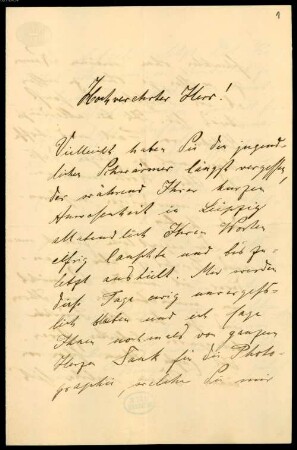 1
Hochverehrter Herr!
Vielleicht haben Sie den jugend-
lichen Schwärmer längst vergessen,
der während Ihrer kurzen
Anwesenheit in Leipzig
allabendlich Ihren Worten
eifrig lauschte und bis zu-
letzt aushielt. Mir werden
diese Tage ewig unvergeß-
lich bleiben und ich sage
Ihnen nochmals von ganzem
Herzen Dank für die Photo-
graphie, welche Sie mir